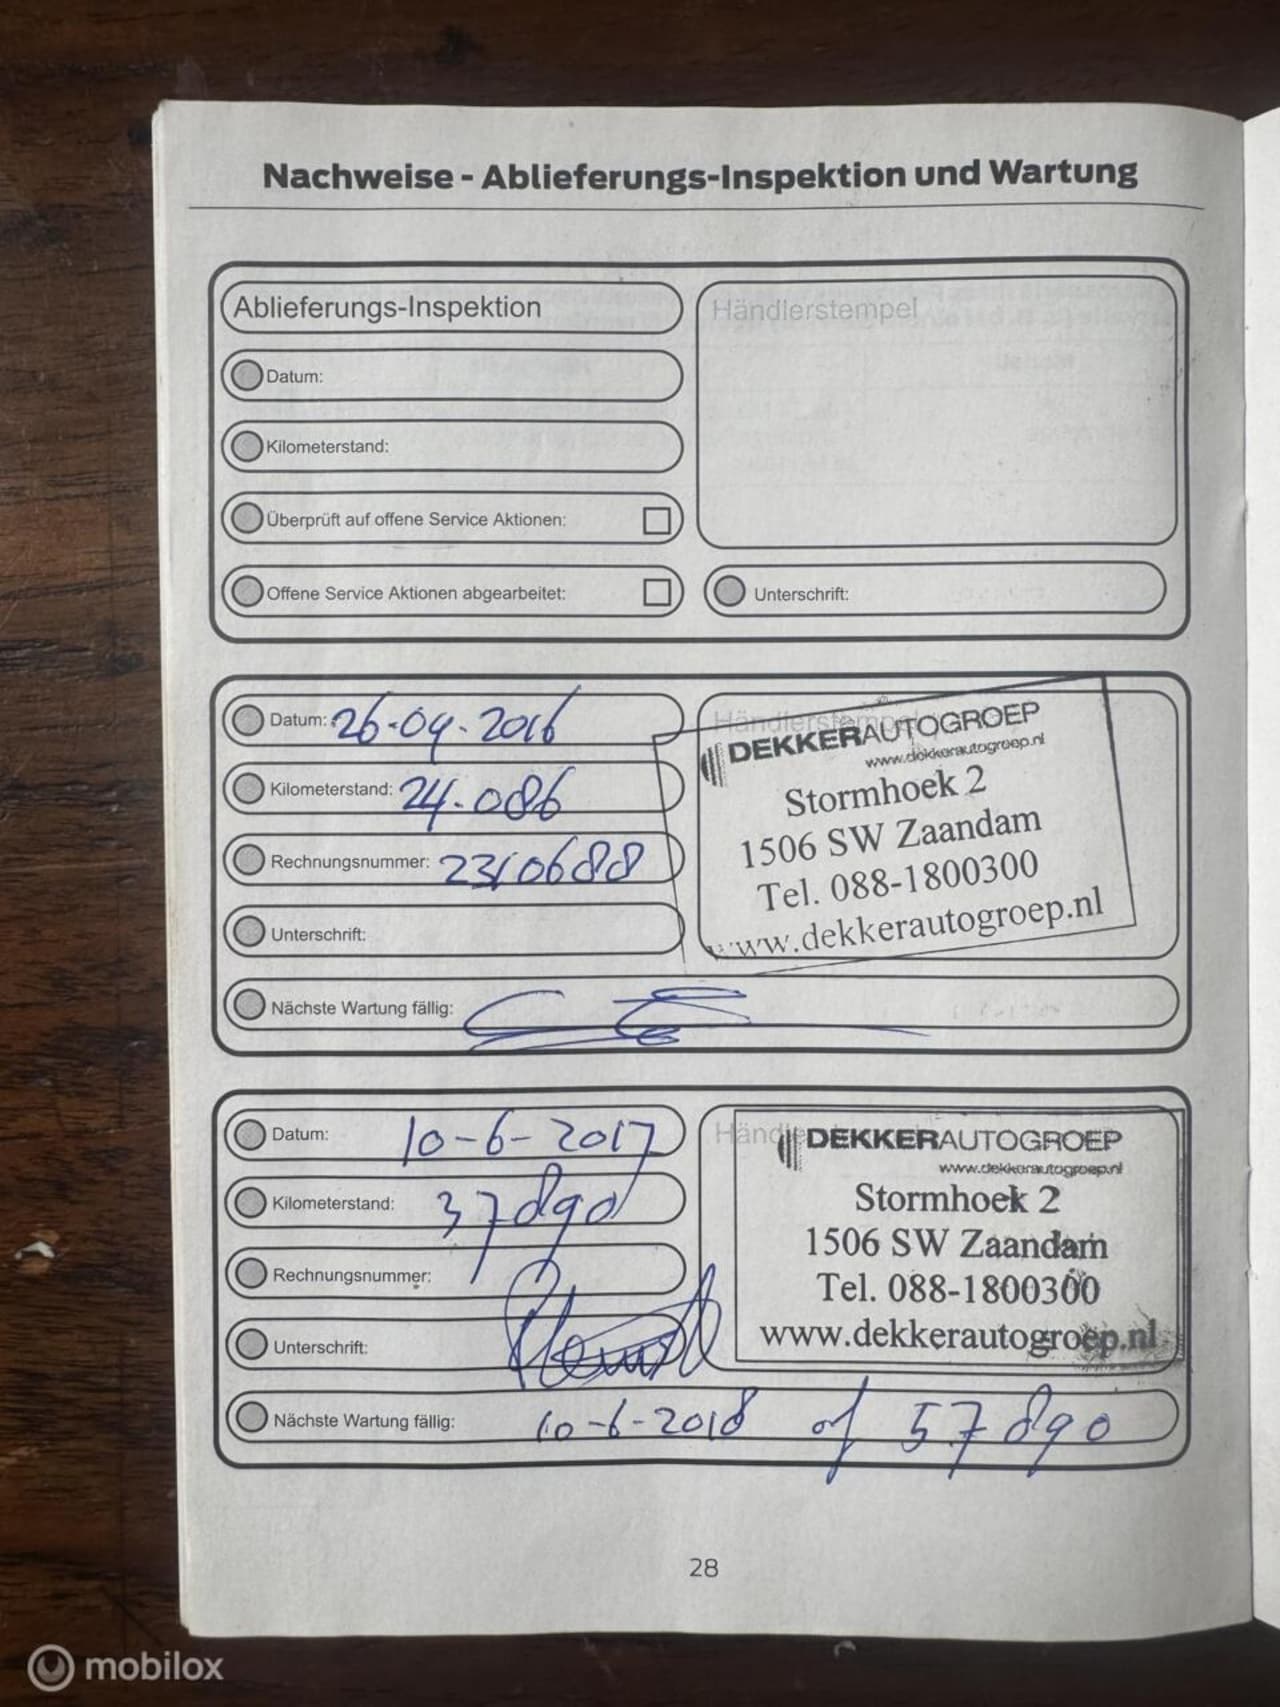 Nachweise - Ablieferungs-Inspektion und Wartung
Ablieferungs-Inspektion
Händlerstempel
Datum:
Kilometerstand:
Überprüft auf offene Service Aktionen:
Offene Service Aktionen abgearbeitet:
Unterschrift:
Datum: 26-04-2016
Kilometerstand: 24.086
Rechnungsnummer: 2310688
Unterschrift:
Nächste Wartung fällig:
Händlerstempel
DEKKERAUTOGROEP
www.dekkerautogroep.nl
Stormhoek 2
1506 SW Zaandam
Tel. 088-1800300
www.dekkerautogroep.nl
Datum: 10-6-2017
Kilometerstand: 37890
Rechnungsnummer:
Unterschrift:
Nächste Wartung fällig: 10-6-2018 of 57890
DEKKERAUTOGROEP
www.dekkerautogroep.nl
Stormhoek 2
1506 SW Zaandam
Tel. 088-1800300
www.dekkerautogroep.nl
28
mobilox